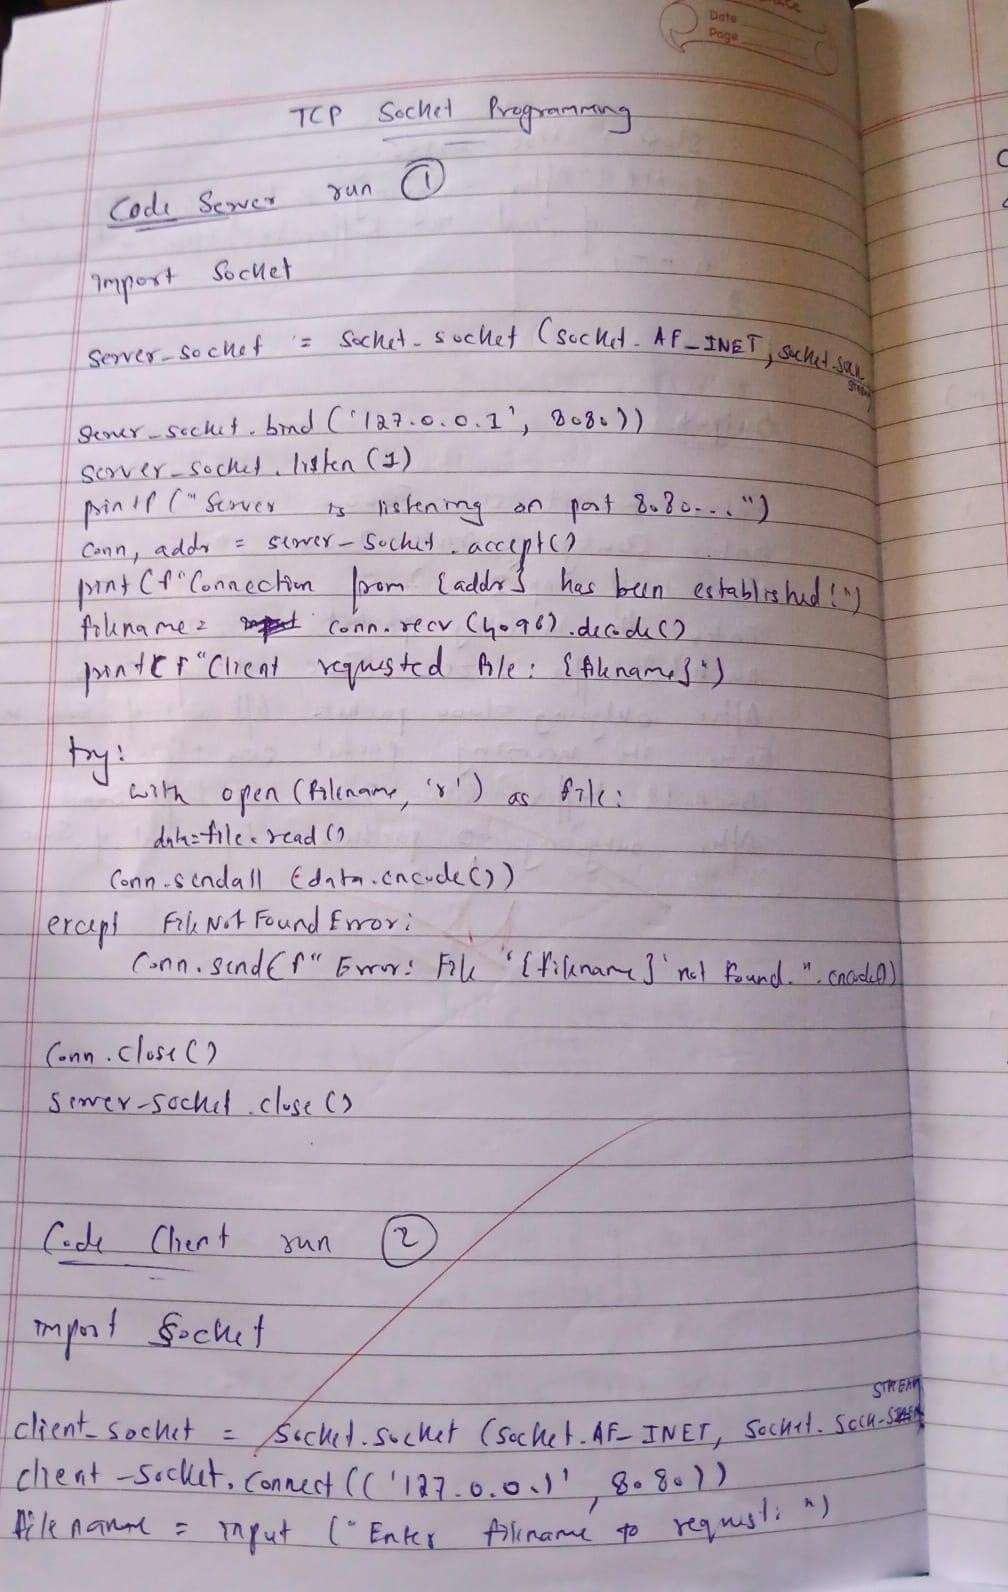 Date
Page
TCP Socket Programming
Code Server run ①
import Socket
Server_socket = Socket.socket (Socket.AF_INET, socket.sock
STREAM
server_socket.bind ('127.0.0.1', 8080))
server_socket.listen (1)
printf ("Server is listening on port 8080...")
Conn, addr = server_socket.accept()
print (f"Connection from {addr} has been established!")
filename = conn.recv (4096).decode()
print(f"Client requested file: {filename}")
try:
with open (filename, 'r') as file:
data=file.read()
Conn.sendall (data.encode())
except FileNotFoundError:
Conn.send(f"Error: File '{filename}' not found.".encode())
Conn.close()
Server_socket.close()
Code Client run ②
import Socket
STREAM
client_socket = Socket.socket (Socket.AF_INET, Socket.Sock_
client_socket.connect (('127.0.0.1', 8080))
file name = input ("Enter filename to request: ")